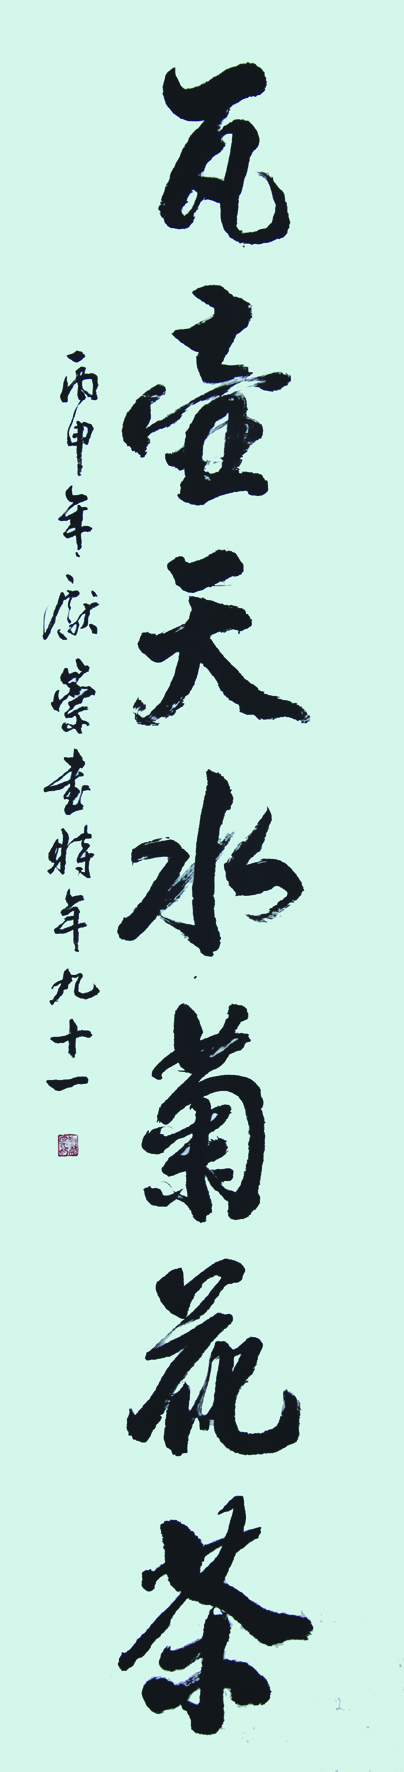 瓦壶天水菊花茶
丙申年献崇書時年九十一